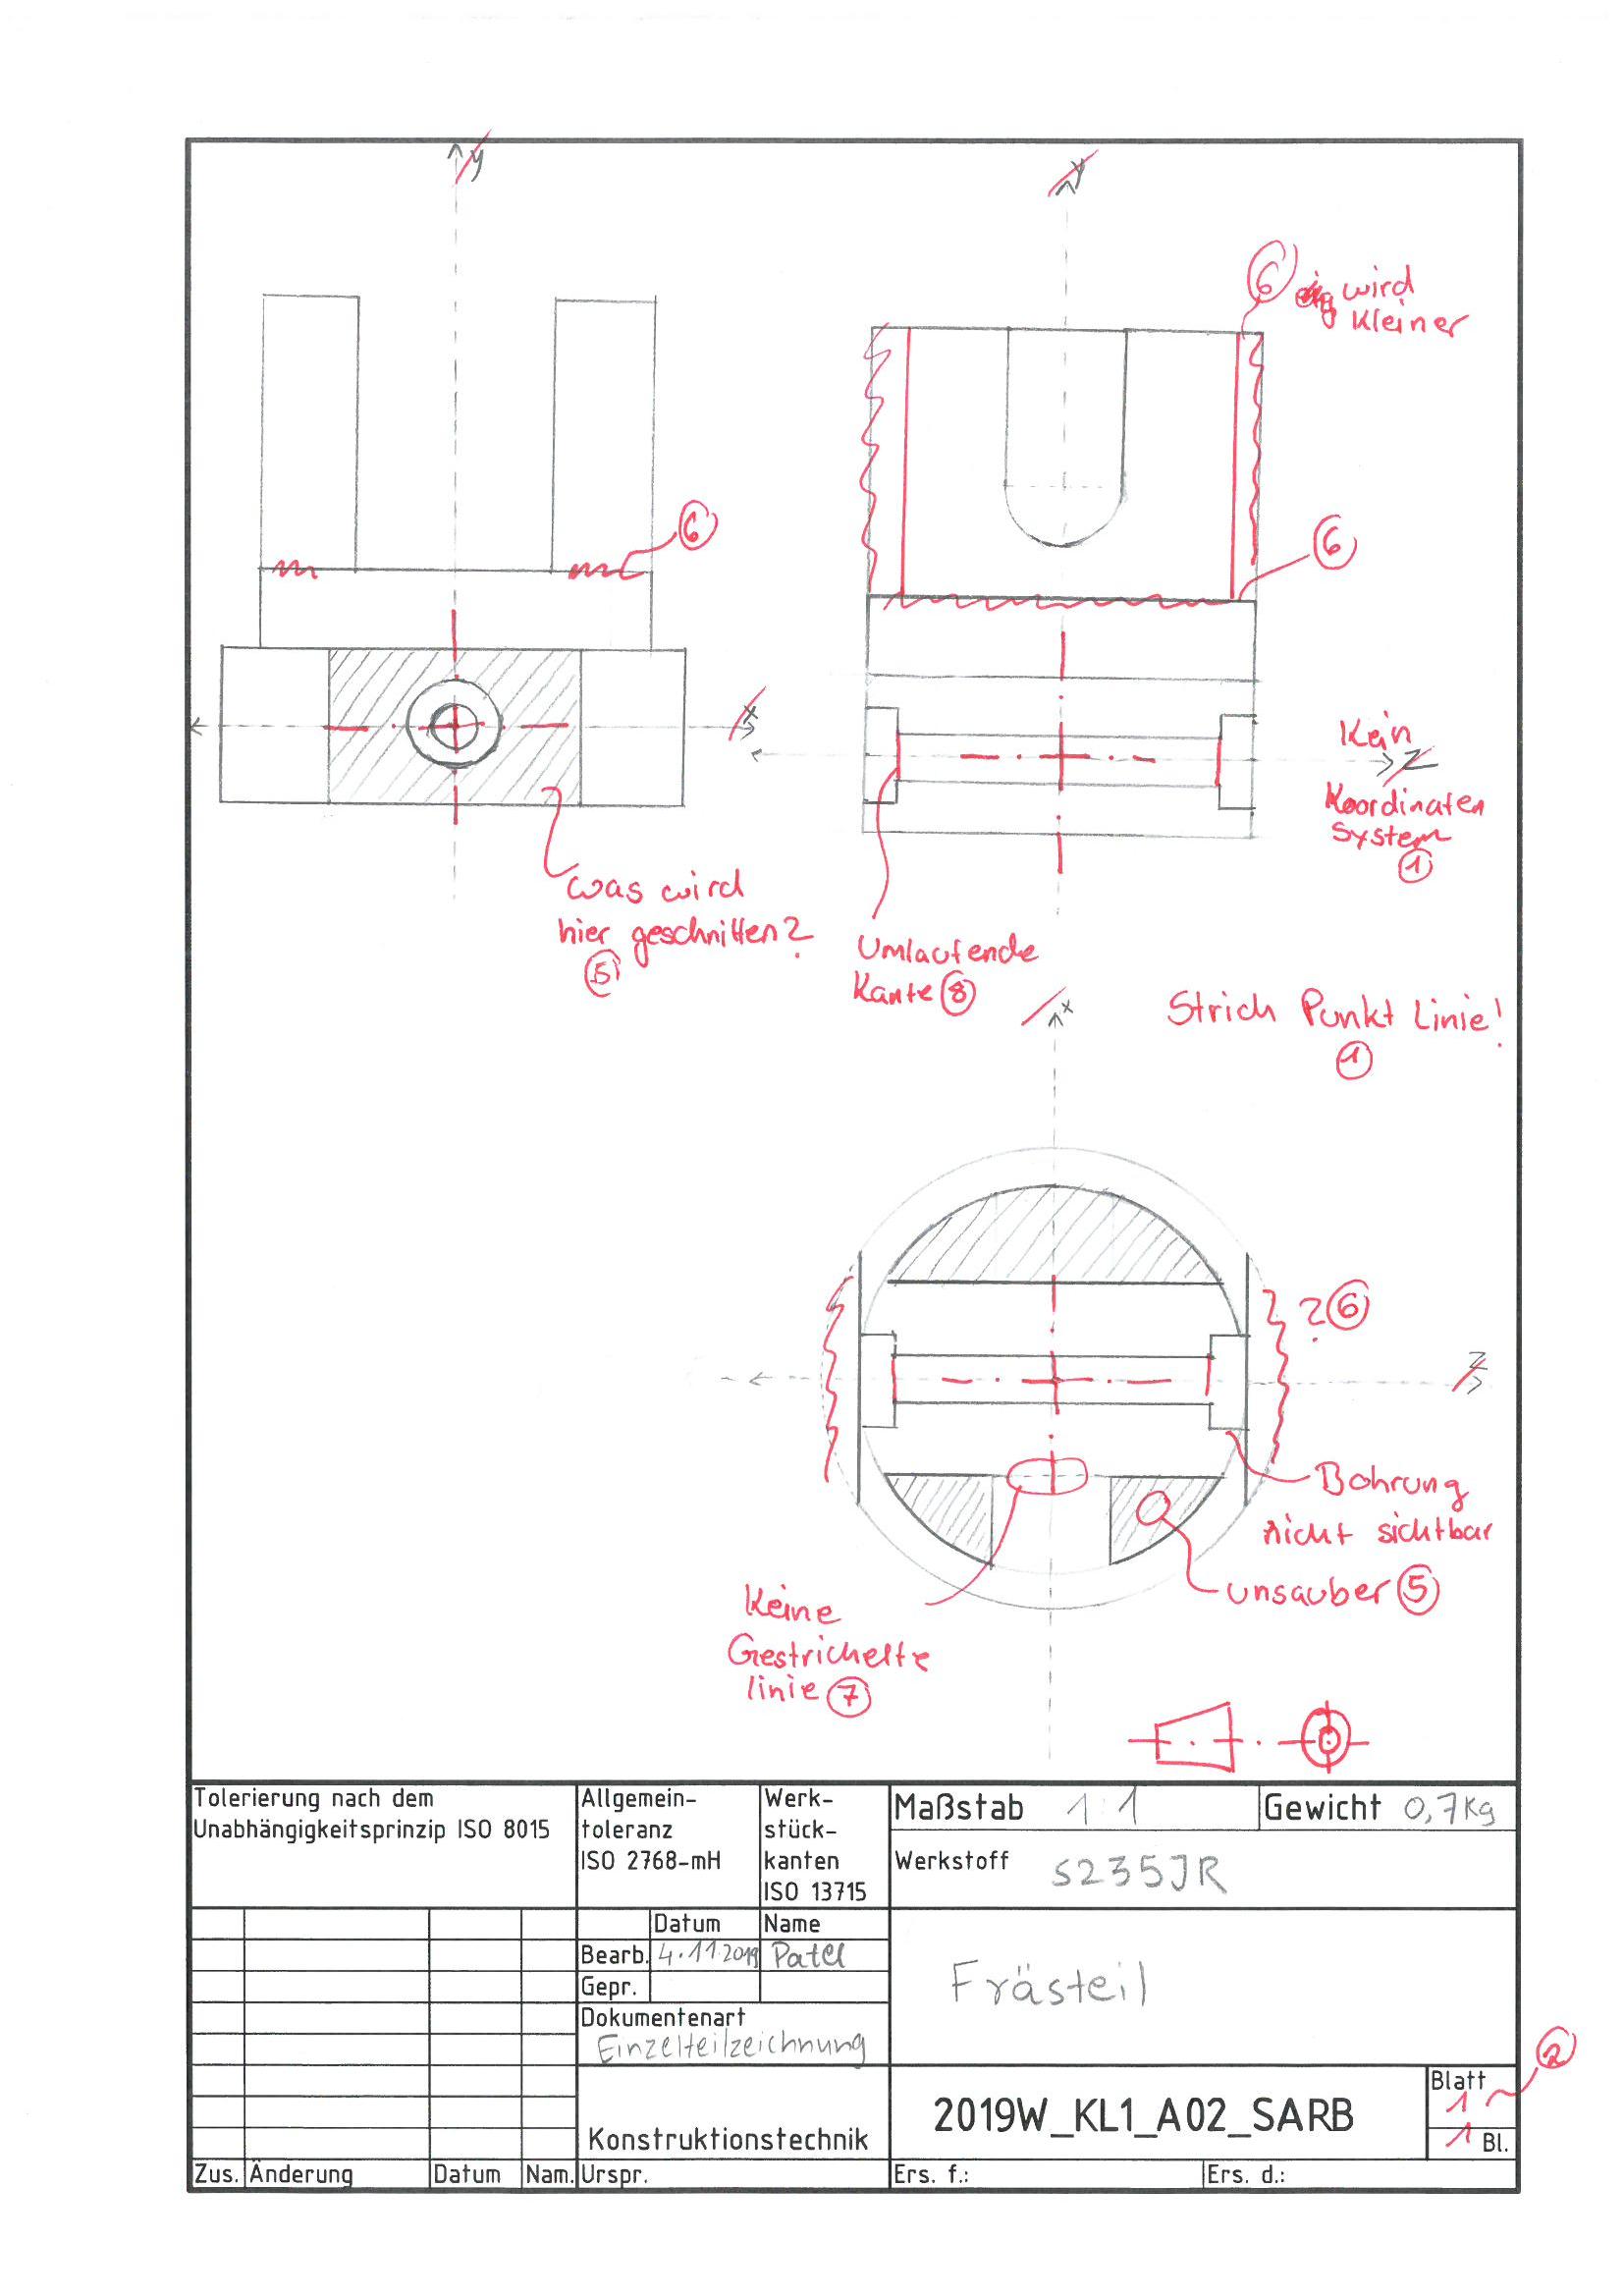 y
y
6
wird
kleiner
6
6
x
Kein
z
Koordinaten
System
1
was wird
hier geschnitten?
5
Umlaufende
Kante 8
x
Strich Punkt Linie!
1
? 6
z
Bohrung
nicht sichtbar
unsauber 5
Keine
Gestrichelte
linie 7
Tolerierung nach dem
Unabhängigkeitsprinzip ISO 8015
Allgemein-
toleranz
ISO 2768-mH
Werk-
stück-
kanten
ISO 13715
Maßstab 1:1
Gewicht 0,7Kg
Werkstoff S235JR
Datum Name
Bearb. 4.11.2019 Patel
Gepr.
Dokumentenart
Einzelteilzeichnung
Frästeil
2
Konstruktionstechnik
2019W_KL1_A02_SARB
Blatt
1
1 Bl.
Zus. Änderung Datum Nam. Urspr. Ers. f.: Ers. d.: